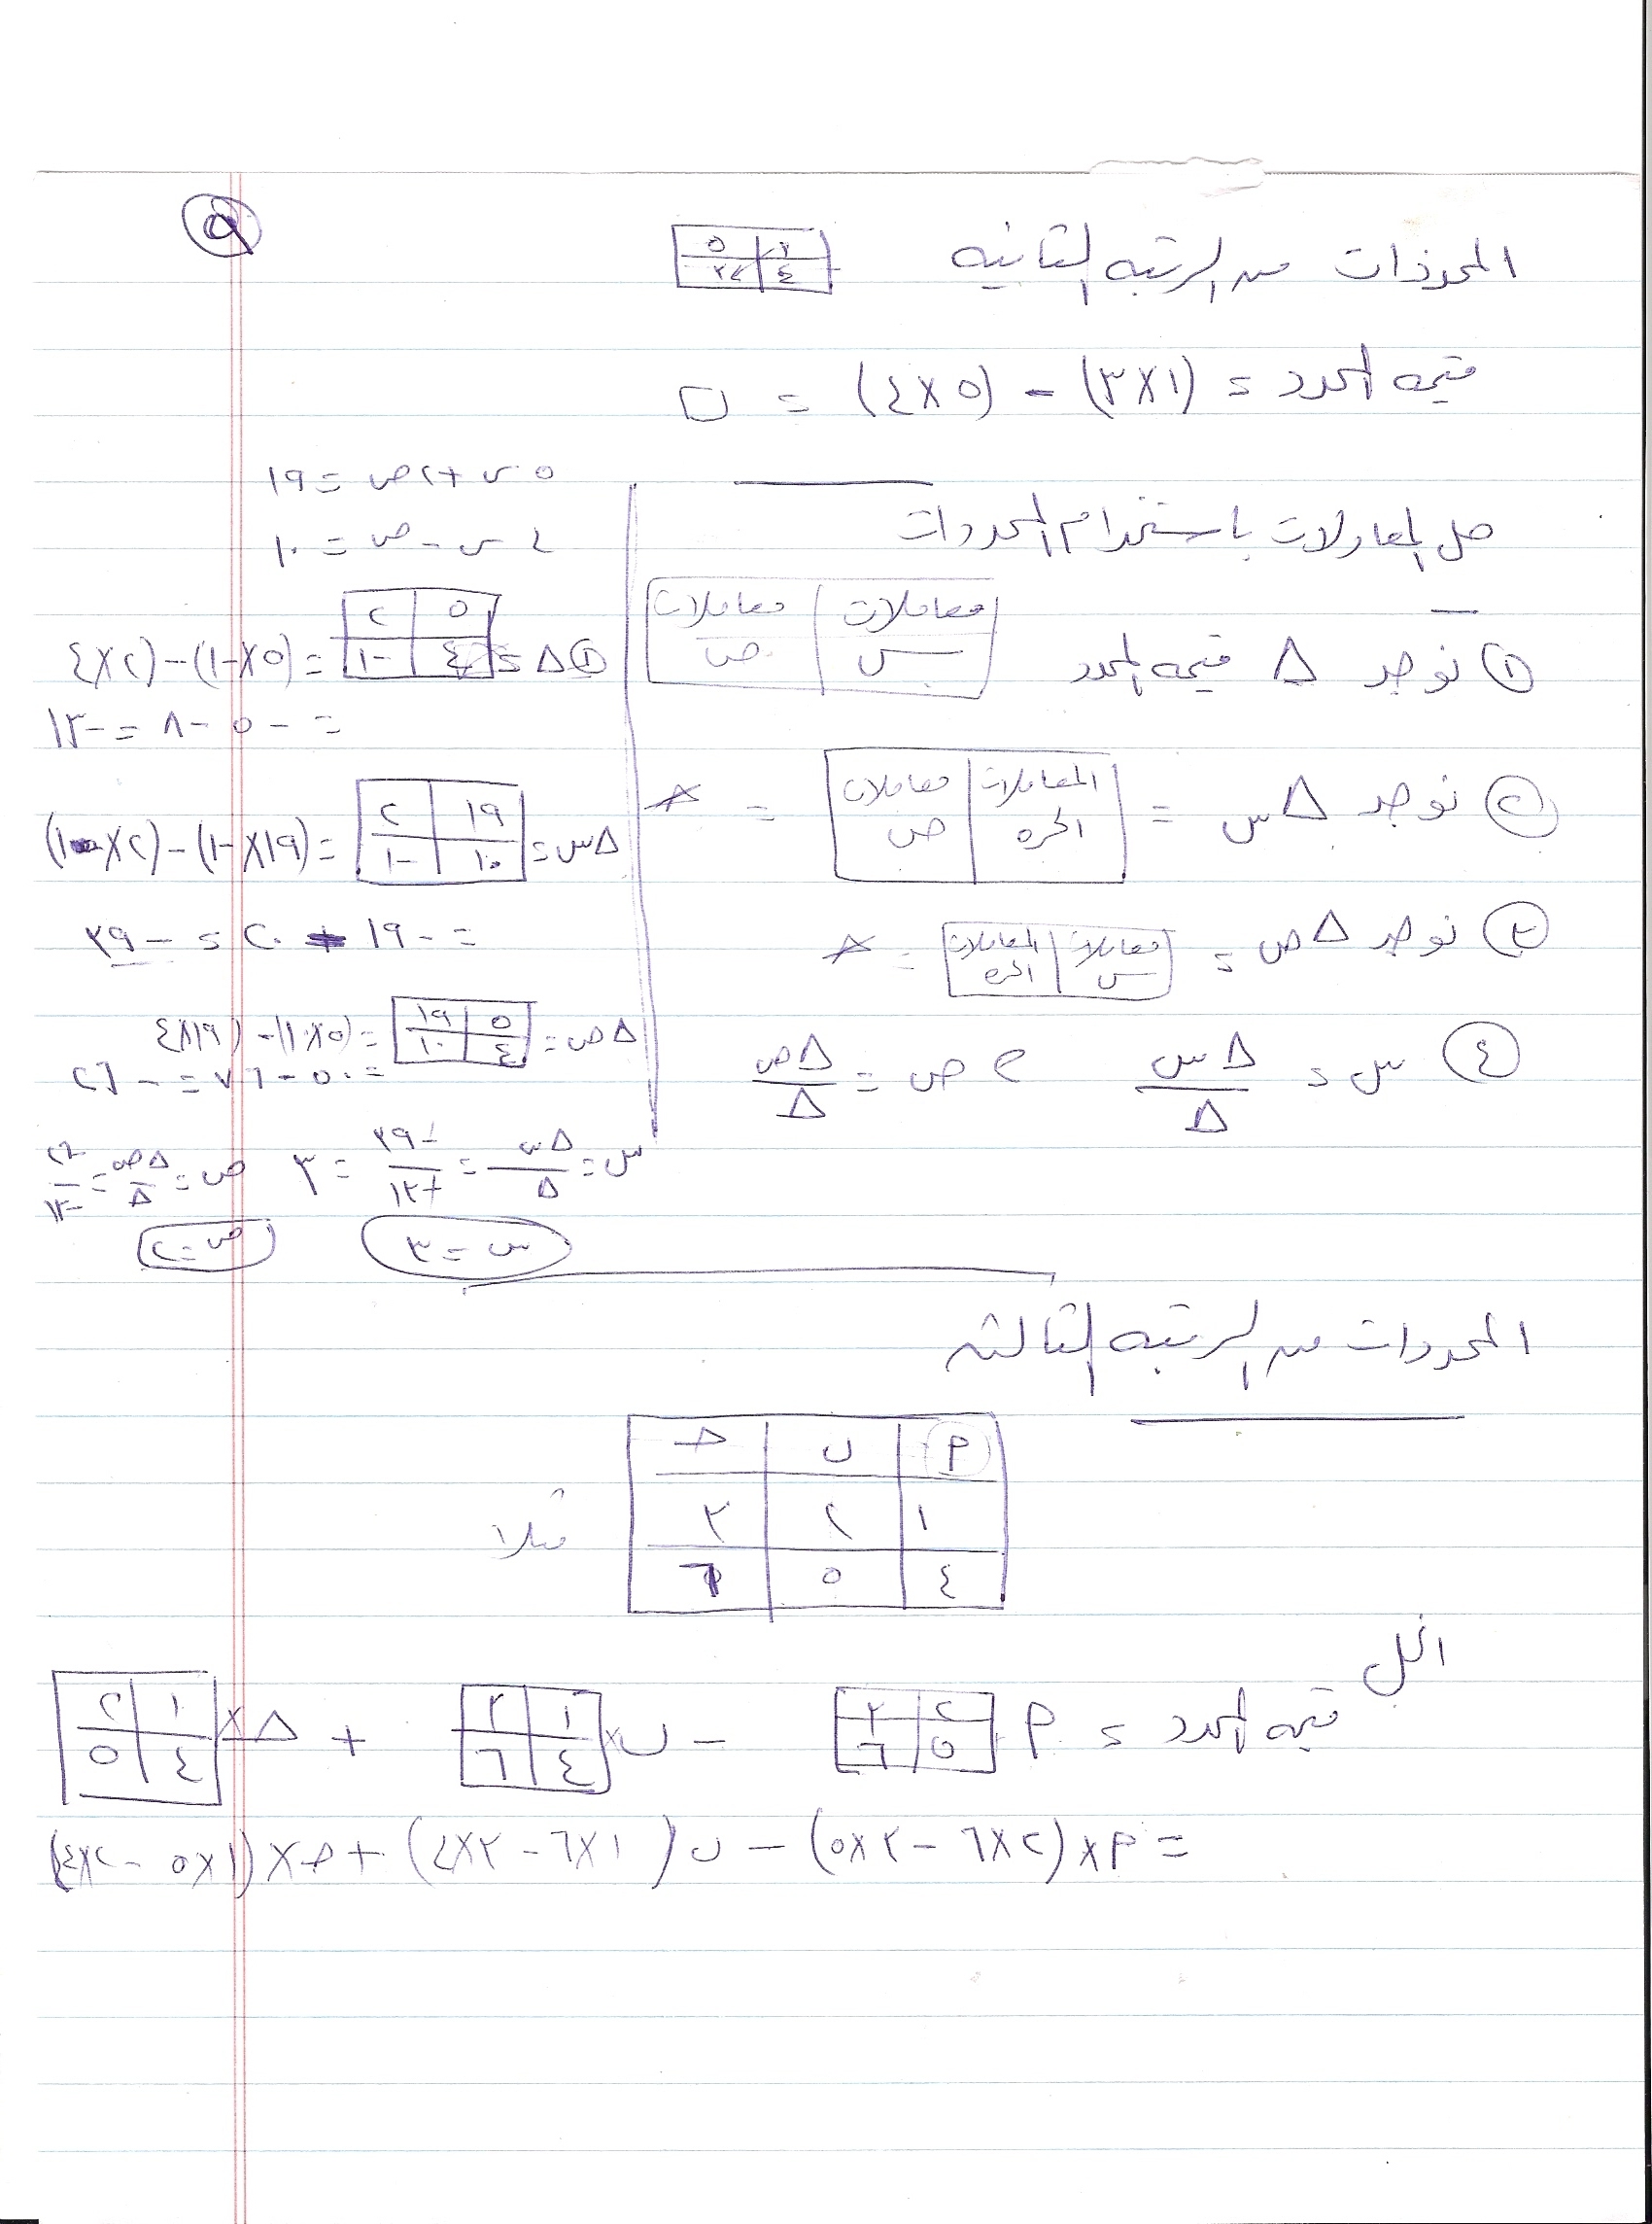 ٩
المحددات من الرتبه الثانيه
٥
٤
قيمه المحدد = (١×٣) - (٥×٤) =
حل المعادلات باستخدام المحددات
① نوجد Δ قيمه المحدد
معاملات س | معاملات ص
② نوجد Δس =
المعاملات الحره | معاملات ص
= ×
③ نوجد Δص =
معاملات س | المعاملات الحره
= ×
④ س = Δس / Δ ، ص = Δص / Δ
٥س + ٢ص = ١٩
٤س - ص = ١٠
① Δ =
٥ | ٢
٤ | -١
= (٥×-١) - (٢×٤
= -٥ - ٨ = -١٣
Δس =
١٩ | ٢
١٠ | -١
= (١٩×-١) - (٢×١٠)
= -١٩ - ٢٠ = -٣٩
Δص =
٥ | ١٩
٤ | ١٠
= (٥×١٠) - (١٩×٤
= ٥٠ - ٧٦ = -٢٦
س = Δس / Δ = -٣٩ / -١٣ = ٣
ص = Δص / Δ = -٢٦ / -١٣
س = ٣
ص = ٢
المحددات من الرتبه الثالثه
م | ں | حـ
١ | ٢ | ٣
٤ | ٥ | ٦
مثلا
الحل
قيمه المحدد = م
٢ | ٣
٥ | ٦
- ں ×
١ | ٣
٤ | ٦
+ حـ ×
١ | ٢
٤ | ٥
= م × (٢×٦ - ٣×٥) - ں (١×٦ - ٣×٤) + حـ × (١×٥ - ٢×٤)